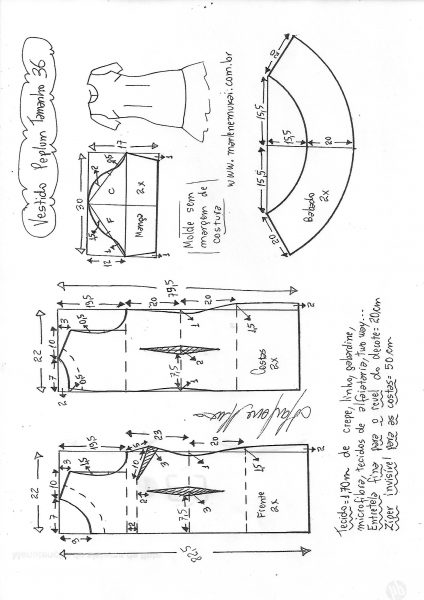 Vestido Peplum Tamanho 36
www.marlenemukai.com.br
17
30
12
15
2
0,5
1
1
F
C
Manga
2x
Molde sem
margem de
costura
20
15,5
15,5
15,5
20
20
Babado
2x
79,5
19,5
20
20
22
10
7
3
0,5
0,5
2
7,5
1
2
1
1,5
2
Costas
2x
82,5
19,5
23
20
22
10
7
3
1,5
9
10
3
2
2
7,5
3
1
1,5
2
Frente
2x
Tecido = 1,70m de crepe, linho, gabardine,
microfibra, tecidos de alfaiataria, two way...
Entretela fina para o revel do decote = 20cm
Zíper invisível para as costas = 50cm